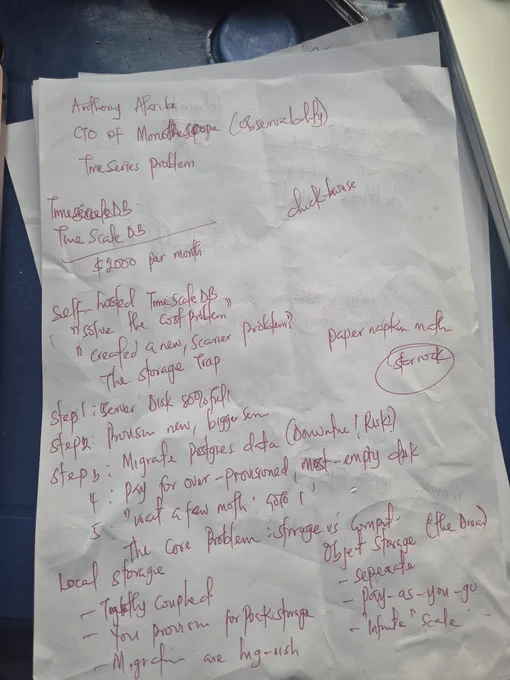 Anthony Alaribe
CTO of Monoscope (Observability)
TimeSeries problem
clickhouse
TimescaleDB
Time Scale DB
$2000 per month
Self-hosted TimeScaleDB
"solve the cost problem"
"created a new, scarier problem?
The storage Trap
paper napkin math
Step 1: Server Disk 80% full!
Step 2: Provision new, bigger
Step 3: Migrate Postgres data (Downtime! Risk!)
4: Pay for over-provisioned, most-empty disk
5 "wait a few moth. Goto 1"
The Core Problem: storage vs Comput
Local Storage
- Tightly Coupled
- You provision for Peak storage
- Migration are hig-rish
Object Storage (the Dream)
- separate
- Pay-as-you-go
- "Infinite" scale